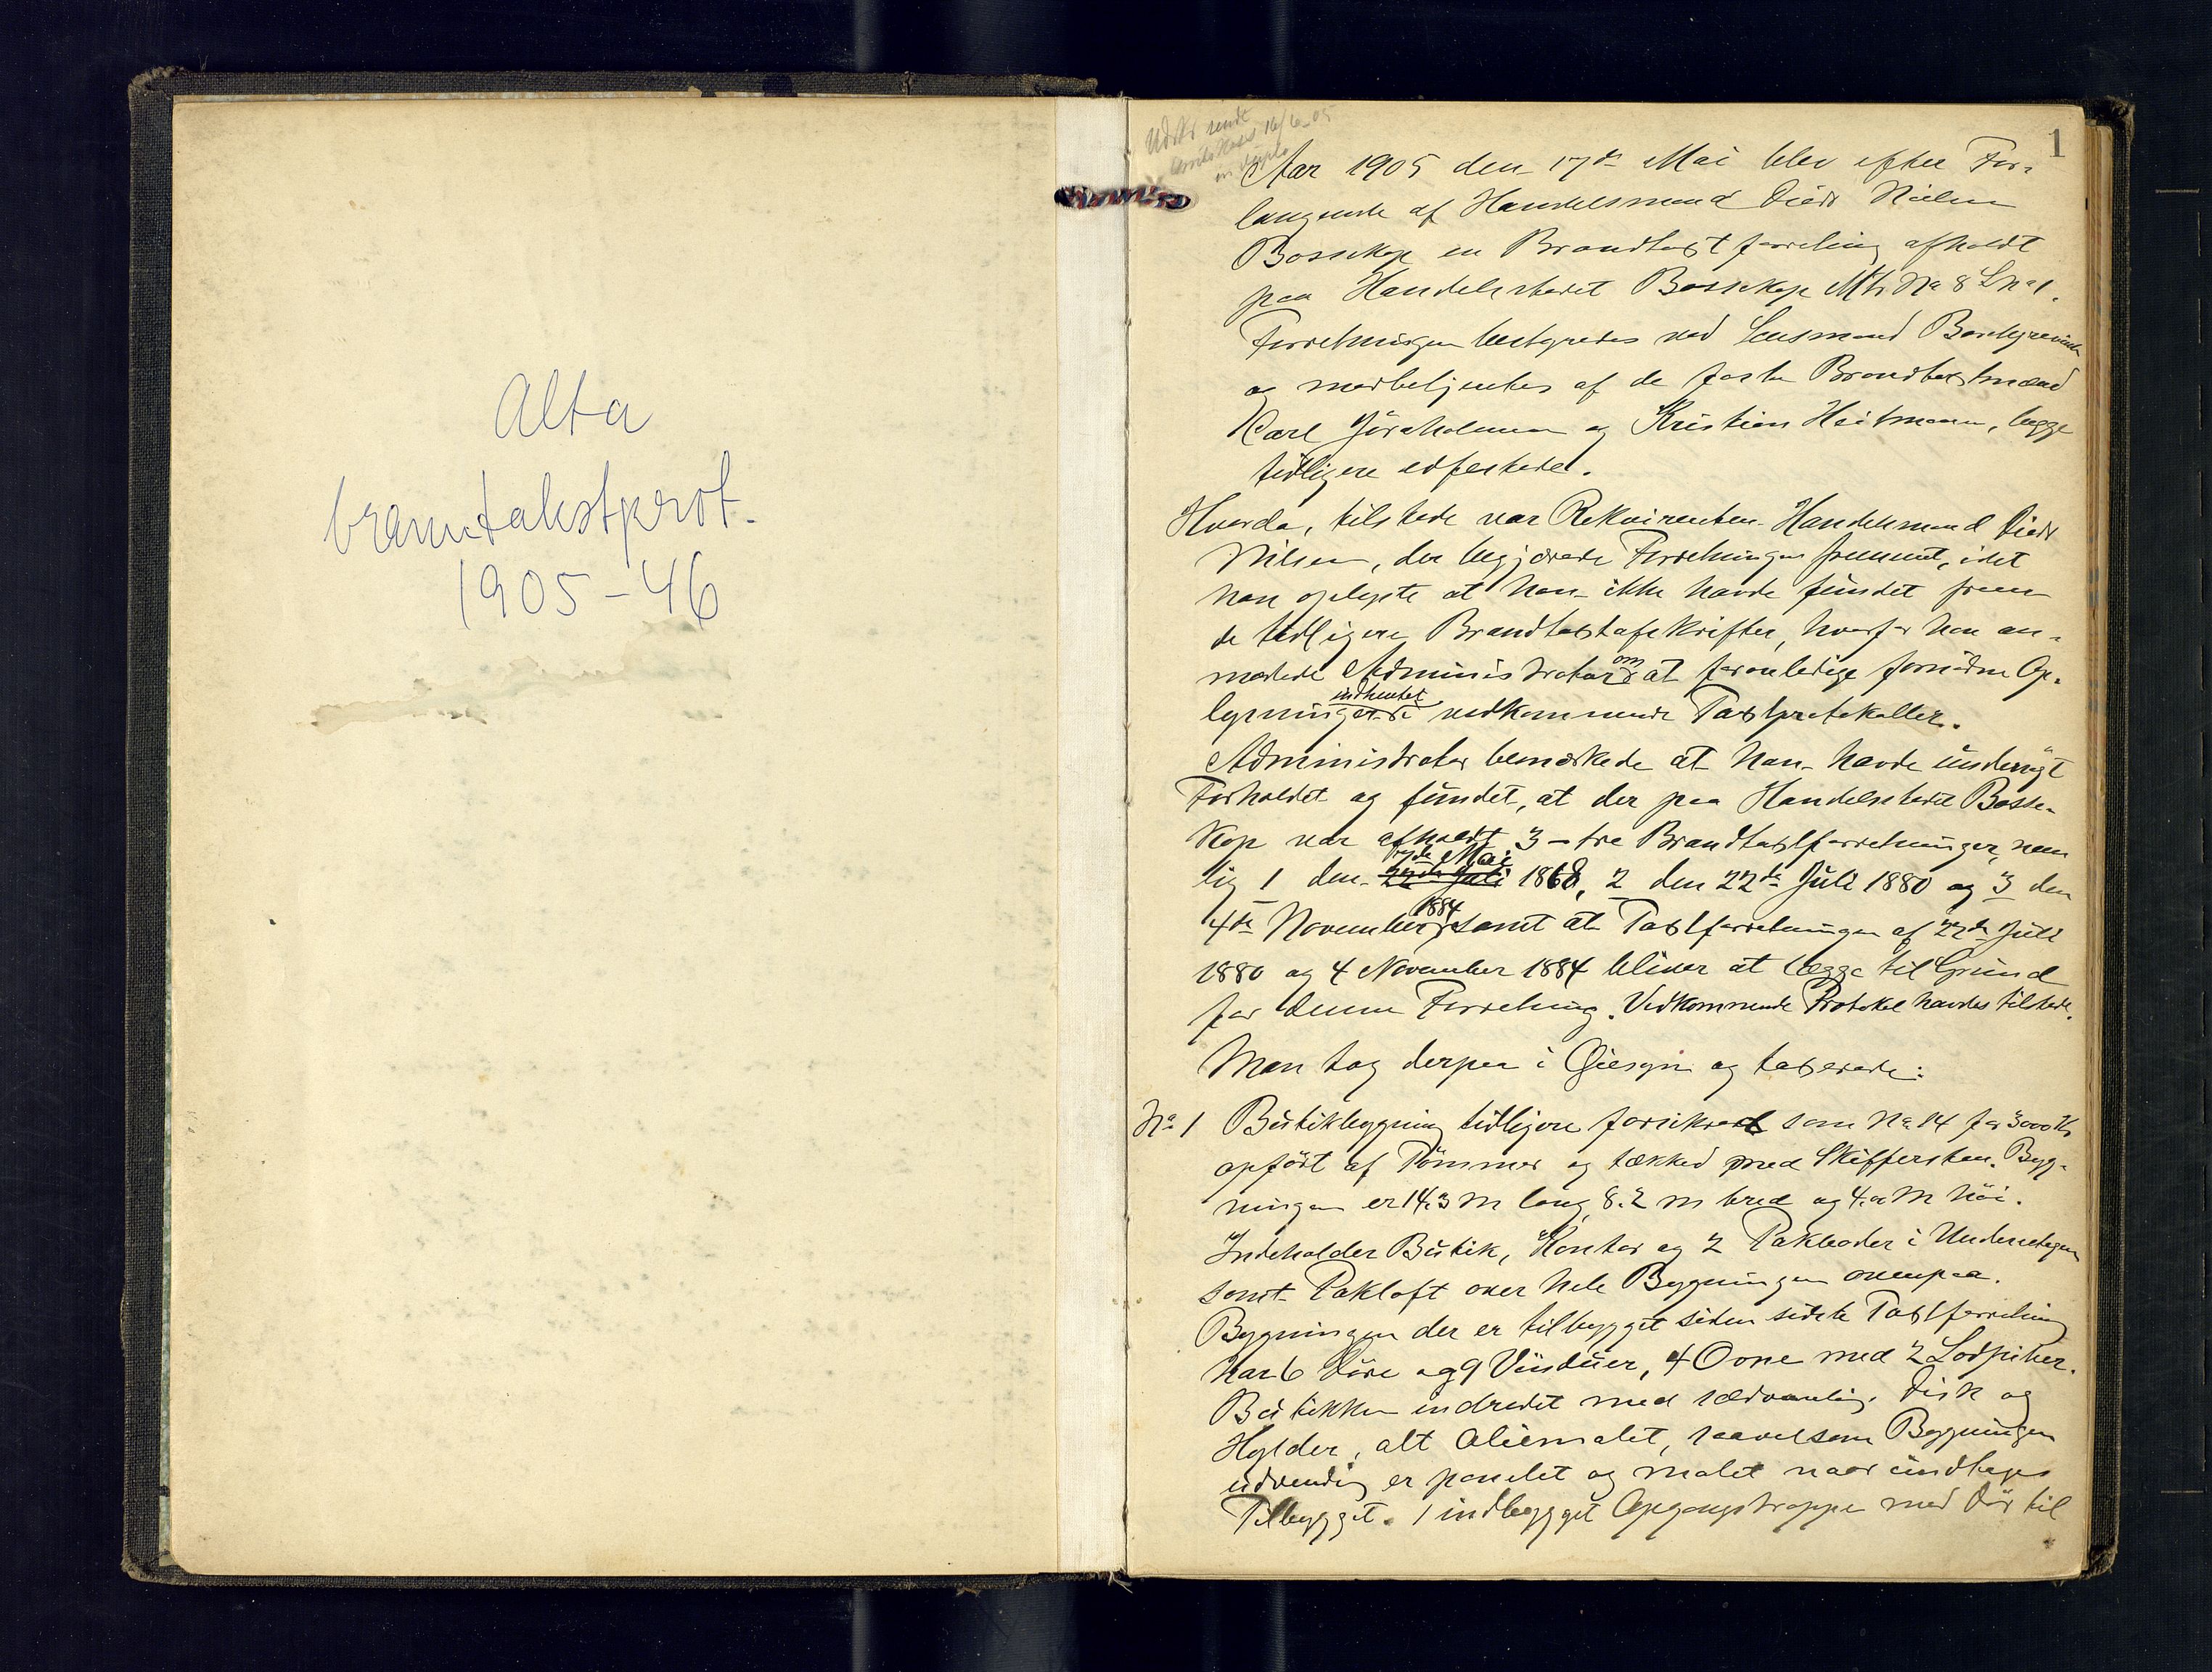 Alta
branntakstprot.
1905-46
1
Udskr sendt
16/6-05
Aar 1905 den 17de Mai blev efter For-
langende af Handelsmand Diedr Nielsen
Bossekop en Brandtaxtforretning afholdt
paa Handelsstedet Bossekop Mtr No 8 Lno 1.
Forretningen bestyredes ved Lensmand Borchgrevink
og medbetjentes af de faste Brandtaxtmænd
Karl Jöraholmen og Kristian Heitmann, begge
tidligere edfestede.
Hvorda, tilstede var Rekvirenten Handelsmand Diedr
Nilsen, der begjærede Forretningen fremmet, idet
han oplyste at han ikke havde fundet frem
de tidligere Brandtaxtafskrifter, hvorfor han an-
modede Administrator om at foranledige fornødne Op-
lysninger indhentet i vedkommende Taxtprotokoller.
Administrator bemærkede at han havde undersøgt
Forholdet og fundet, at der paa Handelsstedet Bosse-
kop var afholdt 3 - tre Brandtaxtforretninger, nem
lig 1 den 22de Juli Mai 1868, 2 den 22de Juli 1880 og 3 den
4de November 1884 samt at Taxtforretningen af 22de Juli
1880 og 4 November 1884 bliver at lægge til Grund
for denne Forretning. Vedkommende Protokol havdes tilstede.
Man tog derpaa i Øiesyn og taxerede:
No 1 Butikbygning tidligere forsikret som No 14 for 3000 Kr
opført af Tømmer og tækked med Skiffersten. Byg-
ningen er 14.3 m lang, 8.2 m bred og 4.a M høi.
Indeholder Butik, Kontor og 2 Pakboder i Underetagen
samt Pakloft over hele Bygningen ovenpaa.
Bygningen der er tilbygget siden sidste Taxtforretning
har 6 Døre og 9 Vinduer, 4 Ovne med 2 Lodpiber.
Butikken indredet med sædvanlig Disk og
Hylder, alt Oliemalet, saavelsom Bygningen
udvendig er panelet og malet naar undtages
Tilbygget. 1 indbygget Opgangstrappe med Dør til